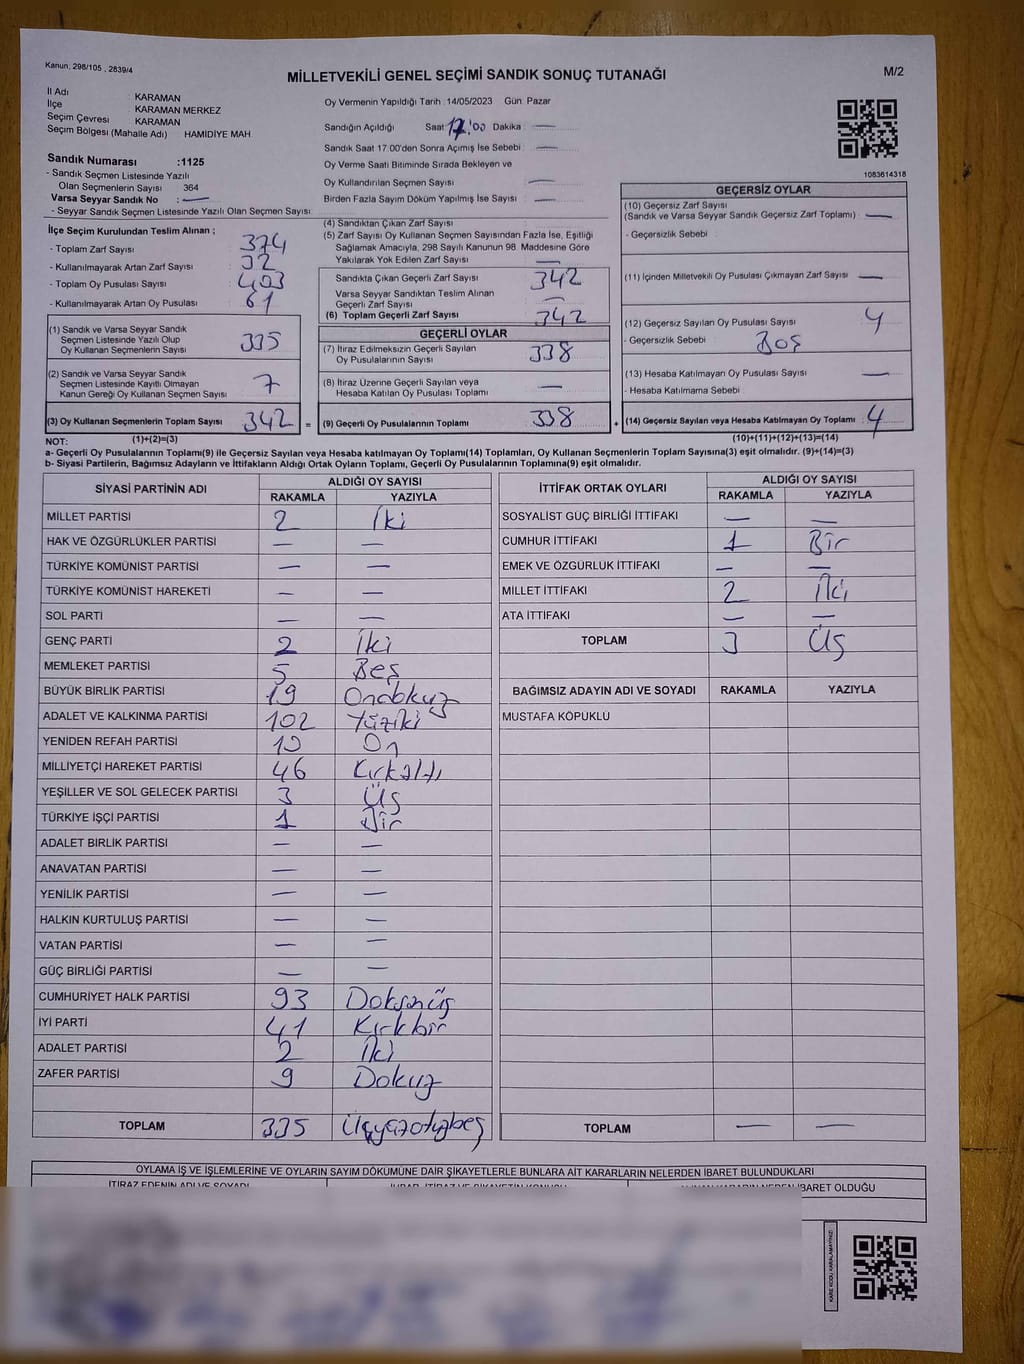 Kanun; 298/105 , 2839/4
MİLLETVEKİLİ GENEL SEÇİMİ SANDIK SONUÇ TUTANAĞI
M/2
İl Adı KARAMAN
İlçe KARAMAN MERKEZ
Seçim Çevresi KARAMAN
Seçim Bölgesi (Mahalle Adı) HAMİDİYE MAH.
Sandık Numarası :1125
- Sandık Seçmen Listesinde Yazılı
Olan Seçmenlerin Sayısı 364
Varsa Seyyar Sandık No : —
- Seyyar Sandık Seçmen Listesinde Yazılı Olan Seçmen Sayısı:
Oy Vermenin Yapıldığı Tarih :14/05/2023 Gün: Pazar
Sandığın Açıldığı Saat 17:00 Dakika : —
Sandık Saat 17.00'den Sonra Açımış İse Sebebi : —
Oy Verme Saati Bitiminde Sırada Bekleyen ve
Oy Kullandırılan Seçmen Sayısı : —
Birden Fazla Sayım Döküm Yapılmış İse Sayısı : —
1083614318
İlçe Seçim Kurulundan Teslim Alınan ;
- Toplam Zarf Sayısı : 374
- Kullanılmayarak Artan Zarf Sayısı : 32
- Toplam Oy Pusulası Sayısı : 403
- Kullanılmayarak Artan Oy Pusulası : 61
(1) Sandık ve Varsa Seyyar Sandık
Seçmen Listesinde Yazılı Olup
Oy Kullanan Seçmenlerin Sayısı : 335
(2) Sandık ve Varsa Seyyar Sandık
Seçmen Listesinde Kayıtlı Olmayan
Kanun Gereği Oy Kullanan Seçmen Sayısı : 7
(3) Oy Kullanan Seçmenlerin Toplam Sayısı : 342 =
(4) Sandıktan Çıkan Zarf Sayısı
(5) Zarf Sayısı Oy Kullanan Seçmen Sayısından Fazla İse, Eşitliği
Sağlamak Amacıyla, 298 Sayılı Kanunun 98. Maddesine Göre
Yakılarak Yok Edilen Zarf Sayısı : —
Sandıkta Çıkan Geçerli Zarf Sayısı : 342
Varsa Seyyar Sandıktan Teslim Alınan
Geçerli Zarf Sayısı : —
(6) Toplam Geçerli Zarf Sayısı : 342
GEÇERLİ OYLAR
(7) İtiraz Edilmeksizin Geçerli Sayılan
Oy Pusulalarının Sayısı : 338
(8) İtiraz Üzerine Geçerli Sayılan veya
Hesaba Katılan Oy Pusulaları Toplamı : —
(9) Geçerli Oy Pusulalarının Toplamı : 338 +
GEÇERSİZ OYLAR
(10) Geçersiz Zarf Sayısı
(Sandık ve Varsa Seyyar Sandık Geçersiz Zarf Toplamı) : —
- Geçersizlik Sebebi :
(11) İçinden Milletvekili Oy Pusulası Çıkmayan Zarf Sayısı : —
(12) Geçersiz Sayılan Oy Pusulası Sayısı : 4
- Geçersizlik Sebebi : Boş
(13) Hesaba Katılmayan Oy Pusulası Sayısı : —
- Hesaba Katılmama Sebebi :
(14) Geçersiz Sayılan veya Hesaba Katılmayan Oy Toplamı : 4
NOT: (1)+(2)=(3) (10)+(11)+(12)+(13)=(14)
a- Geçerli Oy Pusulalarının Toplamı(9) ile Geçersiz Sayılan veya Hesaba katılmayan Oy Toplamı(14) Toplamları, Oy Kullanan Seçmenlerin Toplam Sayısına(3) eşit olmalıdır. (9)+(14)=(3)
b- Siyasi Partilerin, Bağımsız Adayların ve İttifakların Aldığı Ortak Oyların Toplamı, Geçerli Oy Pusulalarının Toplamına(9) eşit olmalıdır.
SİYASİ PARTİNİN ADI ALDIĞI OY SAYISI
RAKAMLA YAZIYLA
MİLLET PARTİSİ 2 İki
HAK VE ÖZGÜRLÜKLER PARTİSİ — —
TÜRKİYE KOMÜNİST PARTİSİ — —
TÜRKİYE KOMÜNİST HAREKETİ — —
SOL PARTİ — —
GENÇ PARTİ 2 İki
MEMLEKET PARTİSİ 5 Beş
BÜYÜK BİRLİK PARTİSİ 19 Ondokuz
ADALET VE KALKINMA PARTİSİ 102 Yüziki
YENİDEN REFAH PARTİSİ 10 On
MİLLİYETÇİ HAREKET PARTİSİ 46 Kırkaltı
YEŞİLLER VE SOL GELECEK PARTİSİ 3 Üç
TÜRKİYE İŞÇİ PARTİSİ 1 Bir
ADALET BİRLİK PARTİSİ — —
ANAVATAN PARTİSİ — —
YENİLİK PARTİSİ — —
HALKIN KURTULUŞ PARTİSİ — —
VATAN PARTİSİ — —
GÜÇ BİRLİĞİ PARTİSİ — —
CUMHURİYET HALK PARTİSİ 93 Doksanüç
İYİ PARTİ 41 Kırkbir
ADALET PARTİSİ 2 İki
ZAFER PARTİSİ 9 Dokuz
TOPLAM 335 Üçyüzotuzbeş
İTTİFAK ORTAK OYLARI ALDIĞI OY SAYISI
RAKAMLA YAZIYLA
SOSYALİST GÜÇ BİRLİĞİ İTTİFAKI — —
CUMHUR İTTİFAKI 1 Bir
EMEK VE ÖZGÜRLÜK İTTİFAKI — —
MİLLET İTTİFAKI 2 İki
ATA İTTİFAKI — —
TOPLAM 3 Üç
BAĞIMSIZ ADAYIN ADI VE SOYADI RAKAMLA YAZIYLA
MUSTAFA KÖPÜKLÜ
TOPLAM — —
OYLAMA İŞ VE İŞLEMLERİNE VE OYLARIN SAYIM DÖKÜMÜNE DAİR ŞİKAYETLERLE BUNLARA AİT KARARLARIN NELERDEN İBARET BULUNDUKLARI
İTİRAZ EDENİN ADI VE SOYADI
İBARET OLDUĞU
KARE KODU KARALAMAYINIZ!